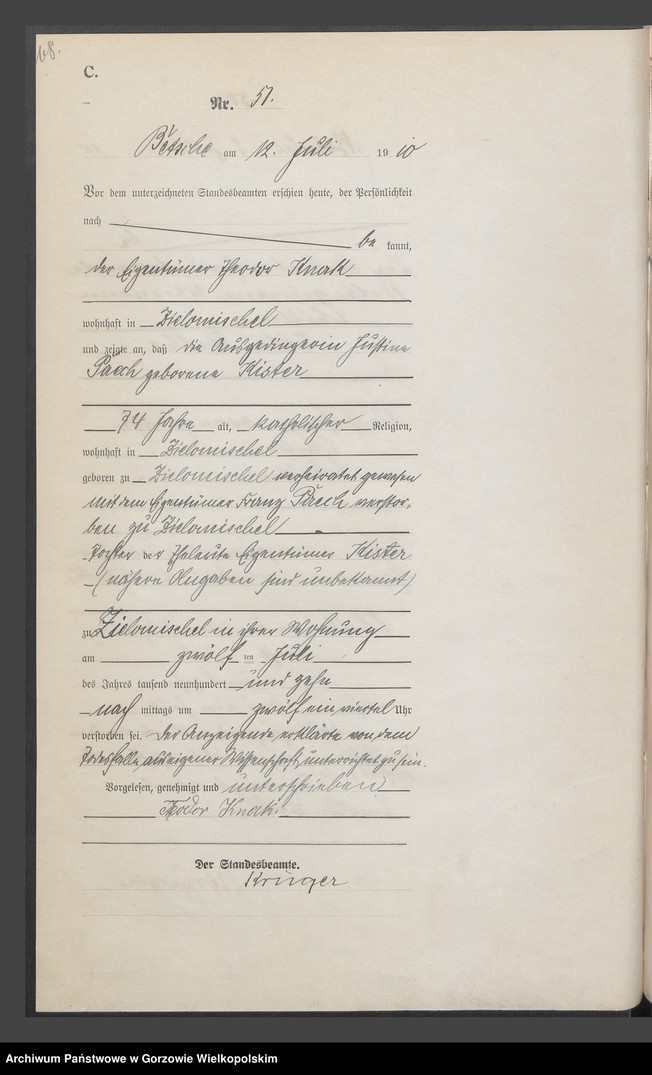 68.
C.
Nr. 51.
Betsche am 12. Juli 1910
Vor dem unterzeichneten Standesbeamten erschien heute, der Persönlichkeit
nach be kannt,
der Eigentümer Theodor Knak
wohnhaft in Zielomischel
und zeigte an, daß die Ausgedingerin Justine
Paech geborene Kister
74 Jahre alt, katholischer Religion,
wohnhaft in Zielomischel
geboren zu Zielomischel verheiratet gewesen
mit dem Eigentümer Franz Paech verstor-
ben zu Zielomischel
Tochter der Eheleute Eigentümer Kister
(nähere Angaben sind unbekannt)
zu Zielomischel in ihrer Wohnung
am zwölf ten Juli
des Jahres tausend neunhundert und zehn
nach mittags um zwölf ein viertel Uhr
verstorben sei. Der Anzeigende erklärte von dem
Todesfalle aus eigener Wissenschaft unterrichtet zu sein.
Vorgelesen, genehmigt und unterschrieben
Theodor Knak.
Der Standesbeamte.
Krüger
Archiwum Państwowe w Gorzowie Wielkopolskim